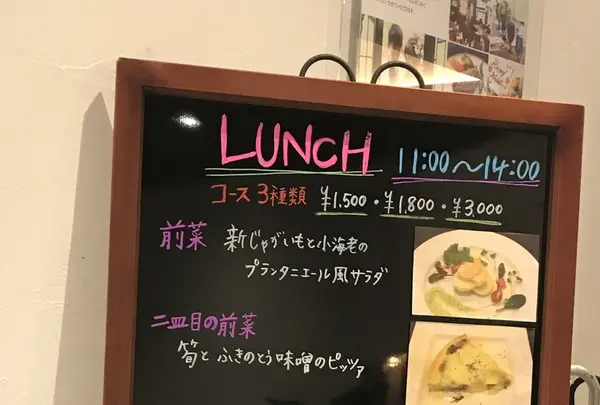 LUNCH 11:00～14:00
コース3種類 ¥1,500・¥1,800・¥3,000
前菜 新じゃがいもと小海老の
プランタニエール風サラダ
二皿目の前菜
筍とふきのとう味噌のピッツァ